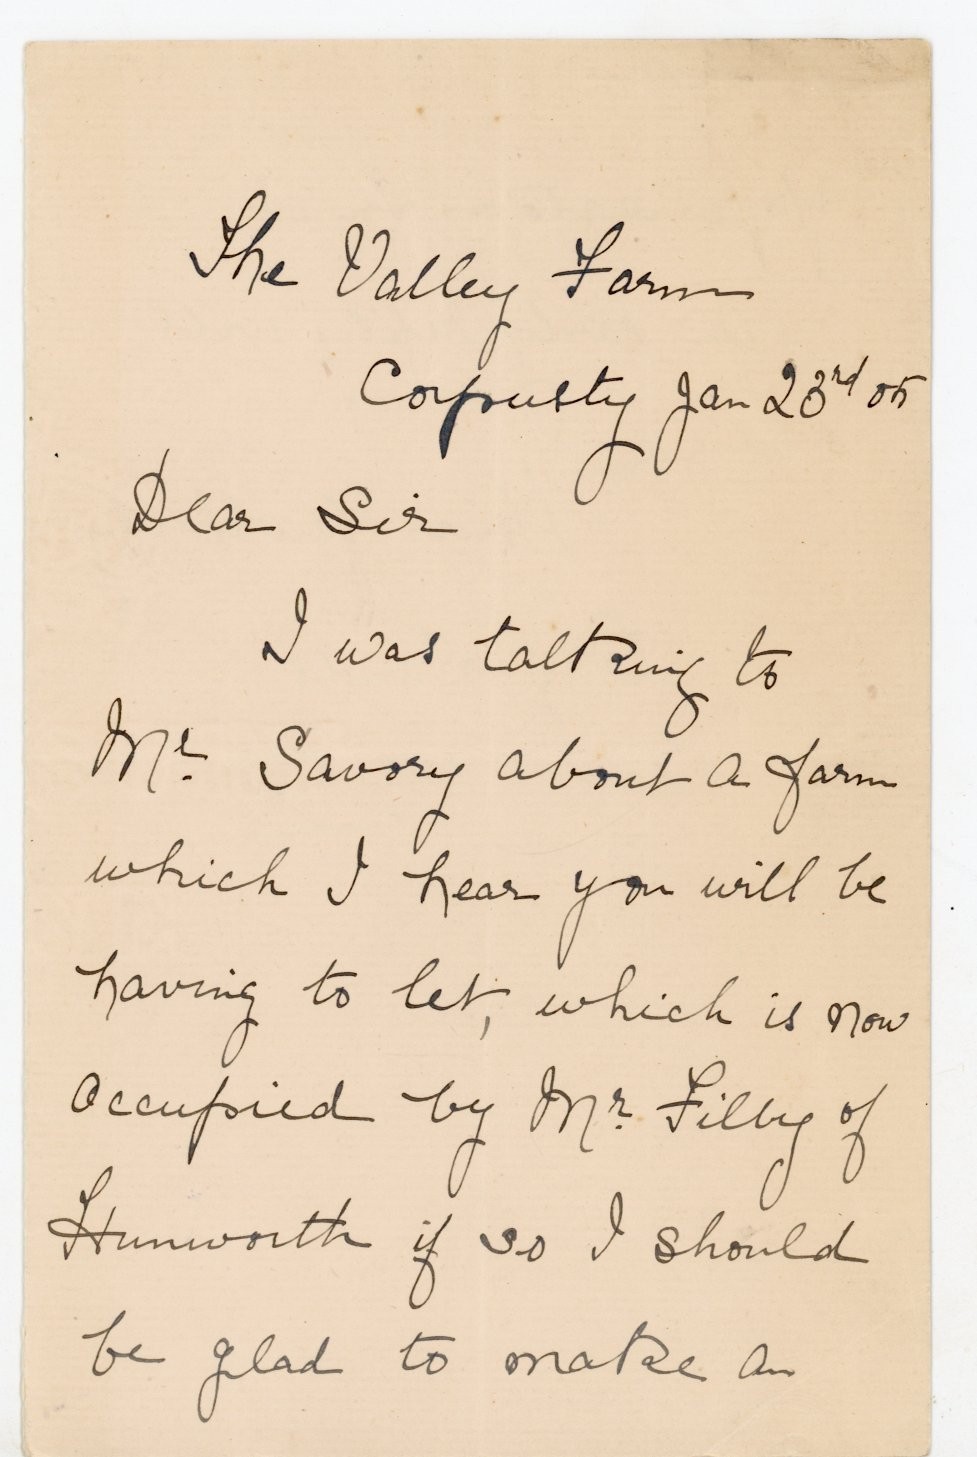 The Valley Farm
Corpusty Jan 23rd 05
Dear Sir
I was talking to
Mr. Savory about a farm
which I hear you will be
having to let, which is now
occupied by Mr. Filby of
Hunworth if so I should
be glad to make an